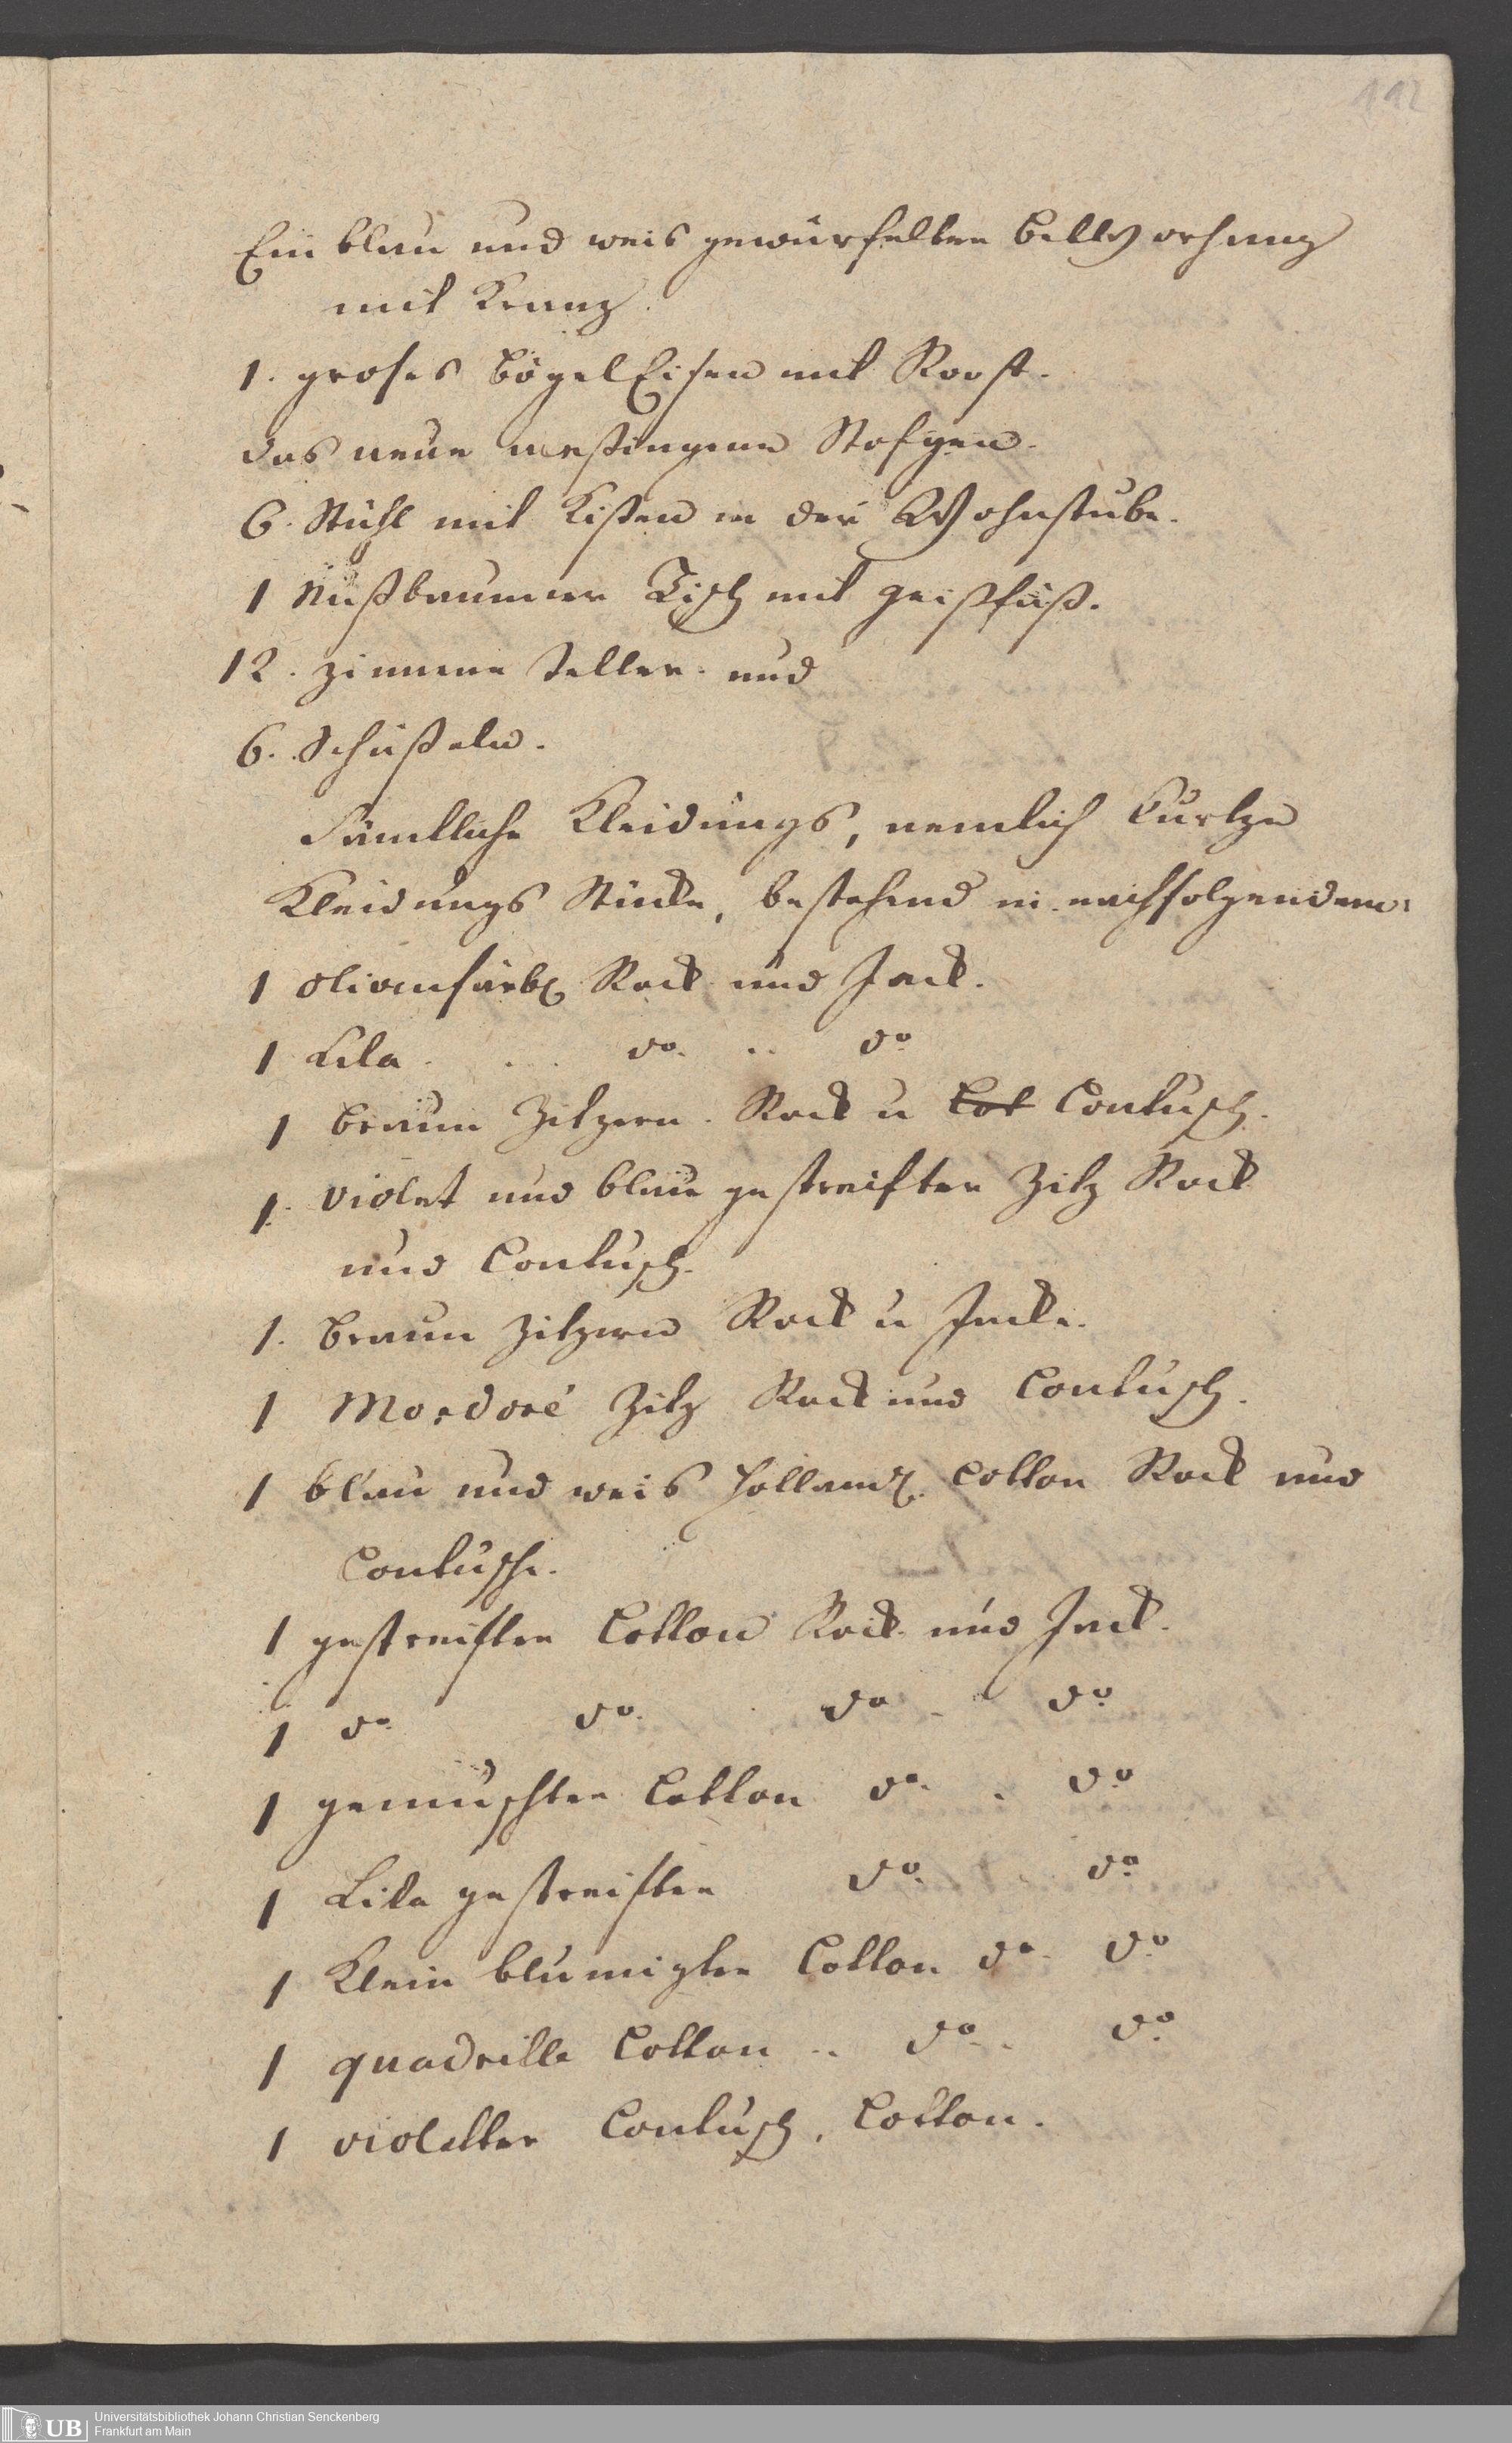 112
Ein blau und weis gewürfelter Bettvorhang
mit Kranz.
1. groses BögelEisen mit Roost.
das neue messingene Stofgen.
6. Stühl mit Kißen in der Wohnstube.
1 Nußbaumer Tisch mit Geißfüß.
12. zinnene Teller und
6. Schüßeln.
Sämtliche Kleidungs, nemlich Kurtze
Kleidungs Stücke, bestehend in nachfolgendem:
1 olivenfarb Rock und Jack.
1 Lila . . . do. .. do
1 braun Zitzern Rock u Cot Contusch.
1. violet und blau gestreifter Zitz Rock
und Contusch.
1. braun Zitzern Rock u Jacke.
1 Mordoré Zitz Rock und Contusch.
1 blau und weis holländ. Cotton Rock und
Contusche.
1 gestreifter Cotton Rock und Jack.
1 do do. do do
1 gemuschter Cotton do. . do
1 Lila gestreifter do. do
1 Klein blumigter Cotton do. do
1 quadrille Cotton .. do. do
1 violetter Contusch, Cotton.
UB Universitätsbibliothek Johann Christian Senckenberg
Frankfurt am Main